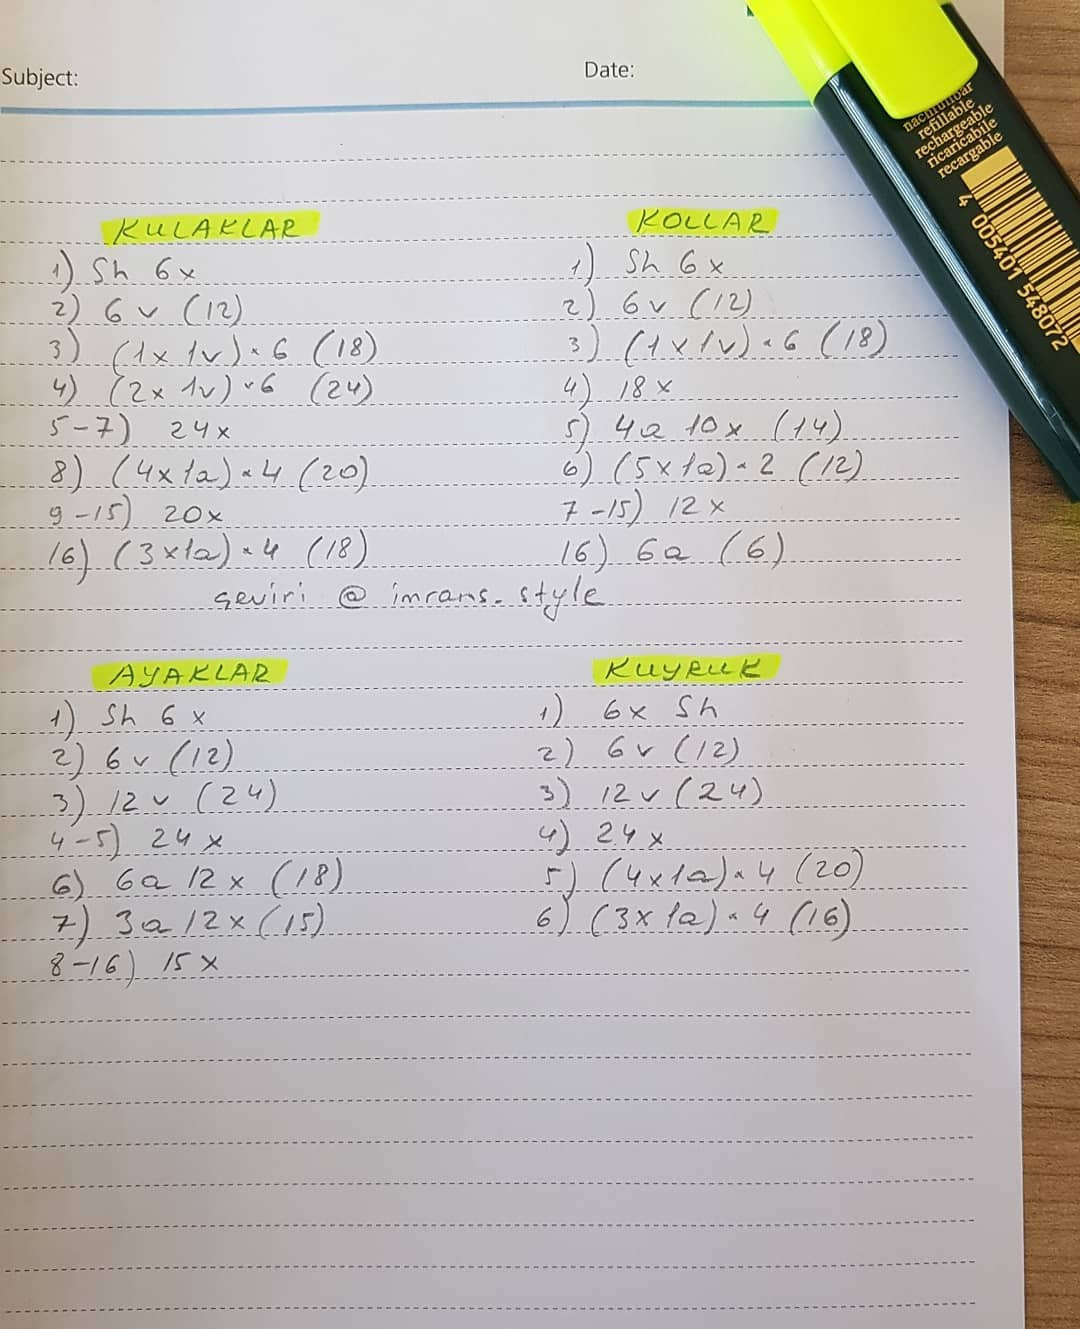 Subject:
Date:
nachfüllbar
refillable
rechargeable
ricaricabile
recargable
4 005401 548072
KULAKLAR
1) Sh 6x
2) 6v (12)
3) (1x 1v) * 6 (18)
4) (2x 1v) * 6 (24)
5-7) 24x
8) (4x1a) * 4 (20)
9-15) 20x
16) (3x1a) * 4 (18)
KOLLAR
1) Sh 6x
2) 6v (12)
3) (1x1v) * 6 (18)
4) 18x
5) 4a 10x (14)
6) (5x1a) * 2 (12)
7-15) 12x
16) 6a (6)
çeviri @ imrans.style
AYAKLAR
1) Sh 6x
2) 6v (12)
3) 12v (24)
4-5) 24x
6) 6a 12x (18)
7) 3a 12x (15)
8-16) 15x
KUYRUK
1) 6x Sh
2) 6v (12)
3) 12v (24)
4) 24x
5) (4x1a) * 4 (20)
6) (3x1a) * 4 (16)